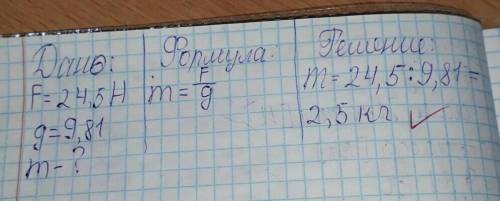 Дано:
F=24,5Н
g=9,81
m-?
Формула:
m=F/g
Решение:
m=24,5:9,81=
2,5 кг